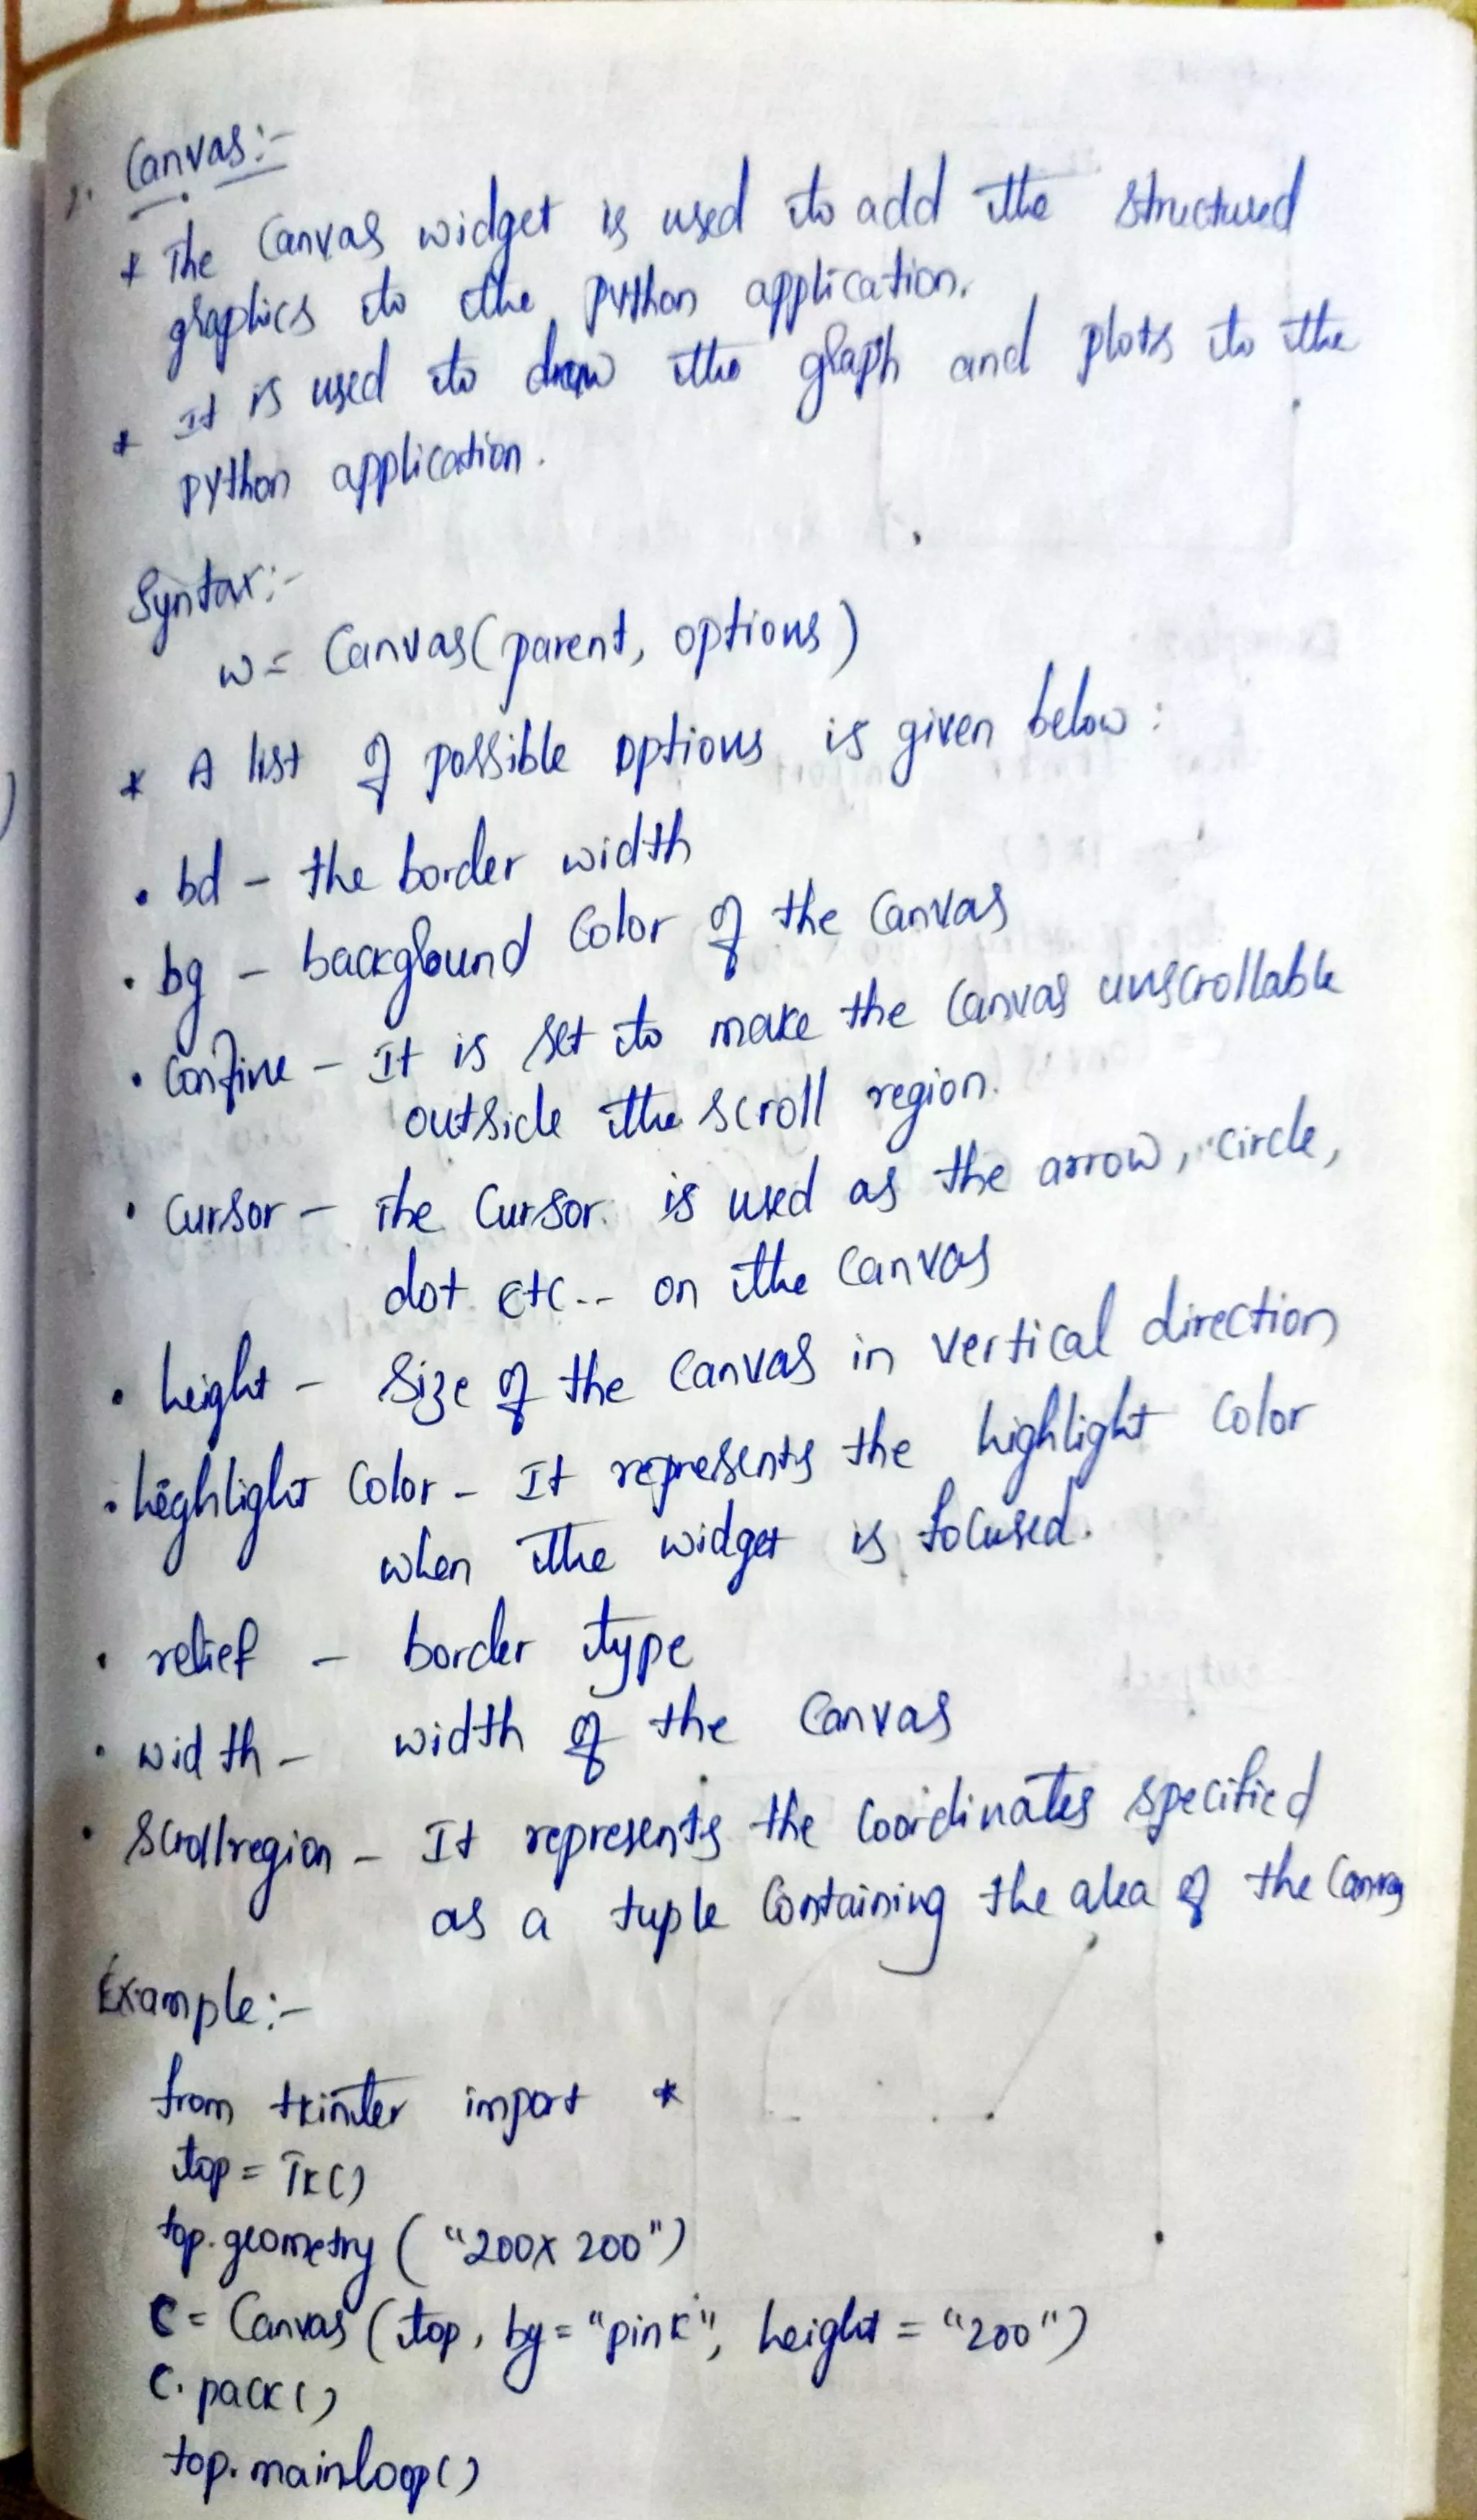 Canvas:-
* The Canvas widget is used to add the structured
graphics to the python application.
* It is used to draw the graph and plots to the
python application.
Syntax:-
w= Canvas(parent, options)
* A list of possible options is given below:
• bd - the border width
• bg - background Color of the Canvas
• Confine - It is set to make the Canvas unscrollable
outside the scroll region.
• Cursor - The Cursor is used as the arrow, circle,
dot etc.. on the Canvas
• height - Size of the Canvas in vertical direction
• highlight Color - It represents the highlight Color
when the widget is focused.
• relief - border type
• width - width of the Canvas
• Scrollregion - It represents the Coordinates specified
as a tuple Containing the area of the Canvas
Example:-
from tkinter import *
top = Tk()
top.geometry ( "200x 200")
C= Canvas (top, bg = "pink", height = "200")
C. pack()
top. mainloop()